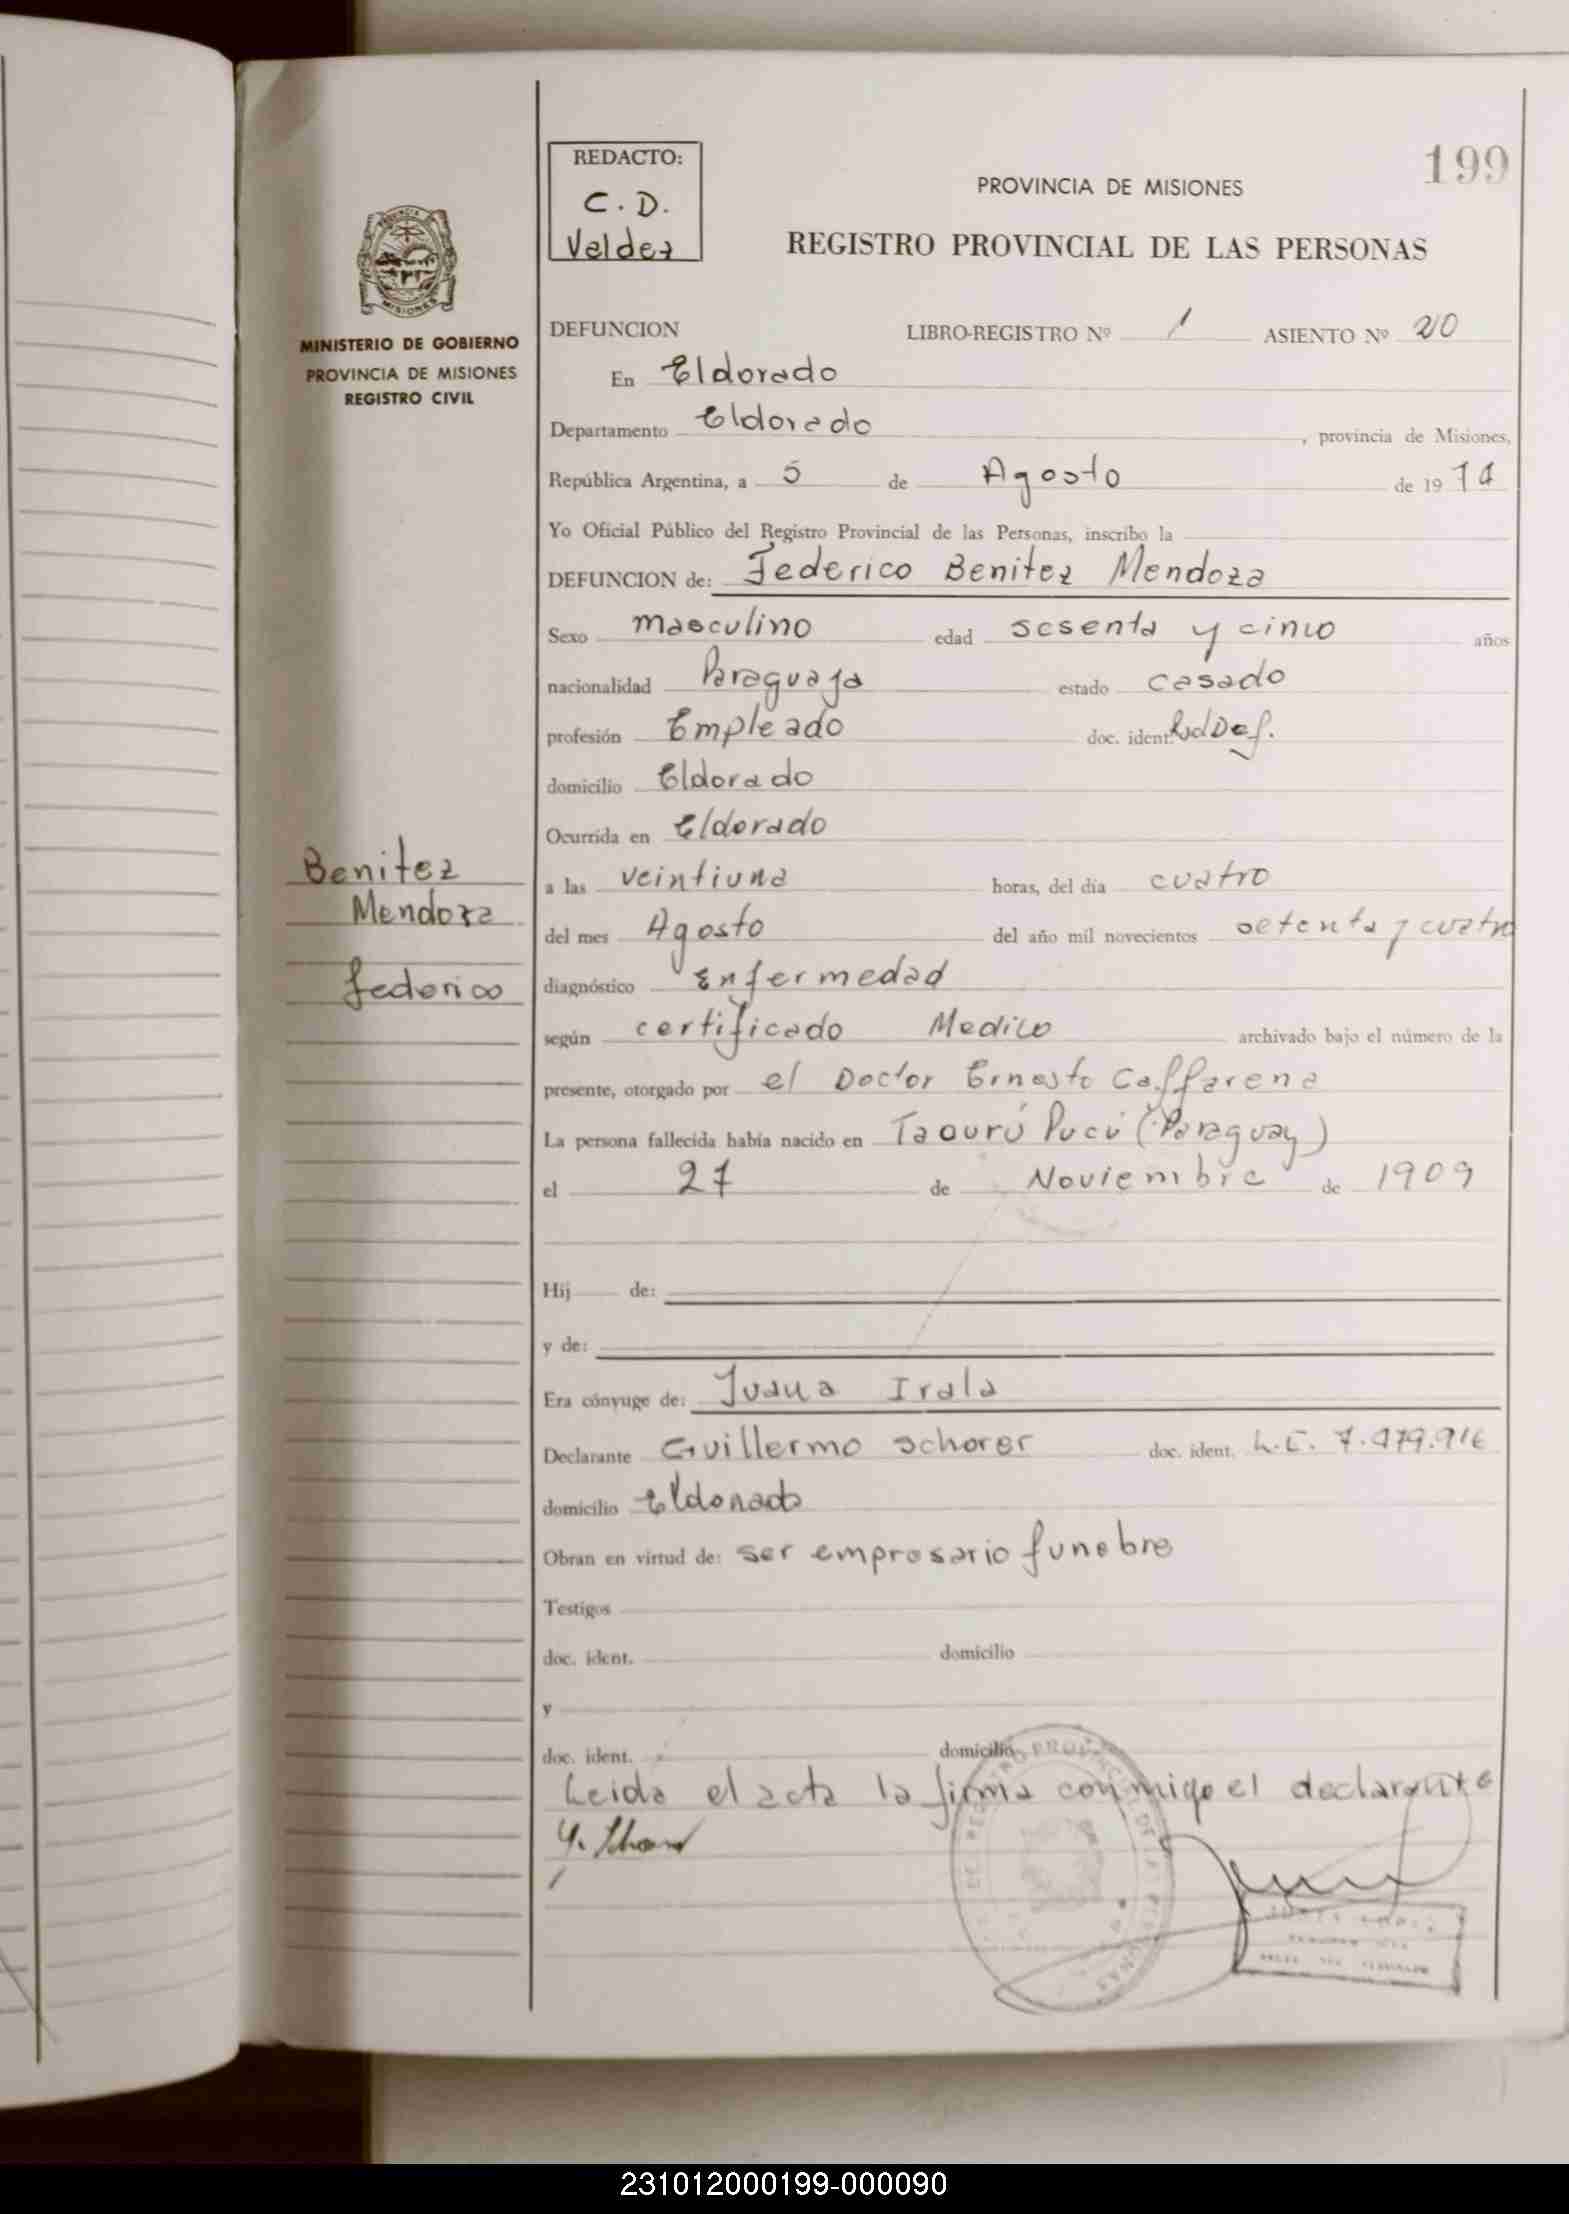 199
REDACTO:
C. D.
Valdez
PROVINCIA DE MISIONES
REGISTRO PROVINCIAL DE LAS PERSONAS
PROVINCIA DE
MISIONES
MINISTERIO DE GOBIERNO
PROVINCIA DE MISIONES
REGISTRO CIVIL
DEFUNCION LIBRO-REGISTRO Nº 1 ASIENTO Nº 210
En Eldorado
Departamento Eldorado, provincia de Misiones,
República Argentina, a 5 de Agosto de 1974
Yo Oficial Público del Registro Provincial de las Personas, inscribo la
DEFUNCION de: Federico Benitez Mendoza
Sexo masculino edad sesenta y cinco años
nacionalidad Paraguaya estado casado
profesión Empleado doc. ident.
domicilio Eldorado
Ocurrida en Eldorado
a las veintiuna horas, del día cuatro
del mes Agosto del año mil novecientos setenta y cuatro
diagnóstico Enfermedad
según certificado Medico archivado bajo el número de la
presente, otorgado por el Doctor Ernesto Caffarena
La persona fallecida había nacido en Pucú (Paraguay)
el 27 de Noviembre de 1909
Hij de:
y de:
Era cónyuge de: Juana Irala
Declarante Guillermo Schorer doc. ident. L.E. 7.479.916
domicilio Eldorado
Obran en virtud de: ser empresario funebre
Testigos
doc. ident. domicilio
y
doc. ident. domicilio
Leida el acta la firma conmigo el declarante
Benitez
Mendoza
Federico
231012000199-000090